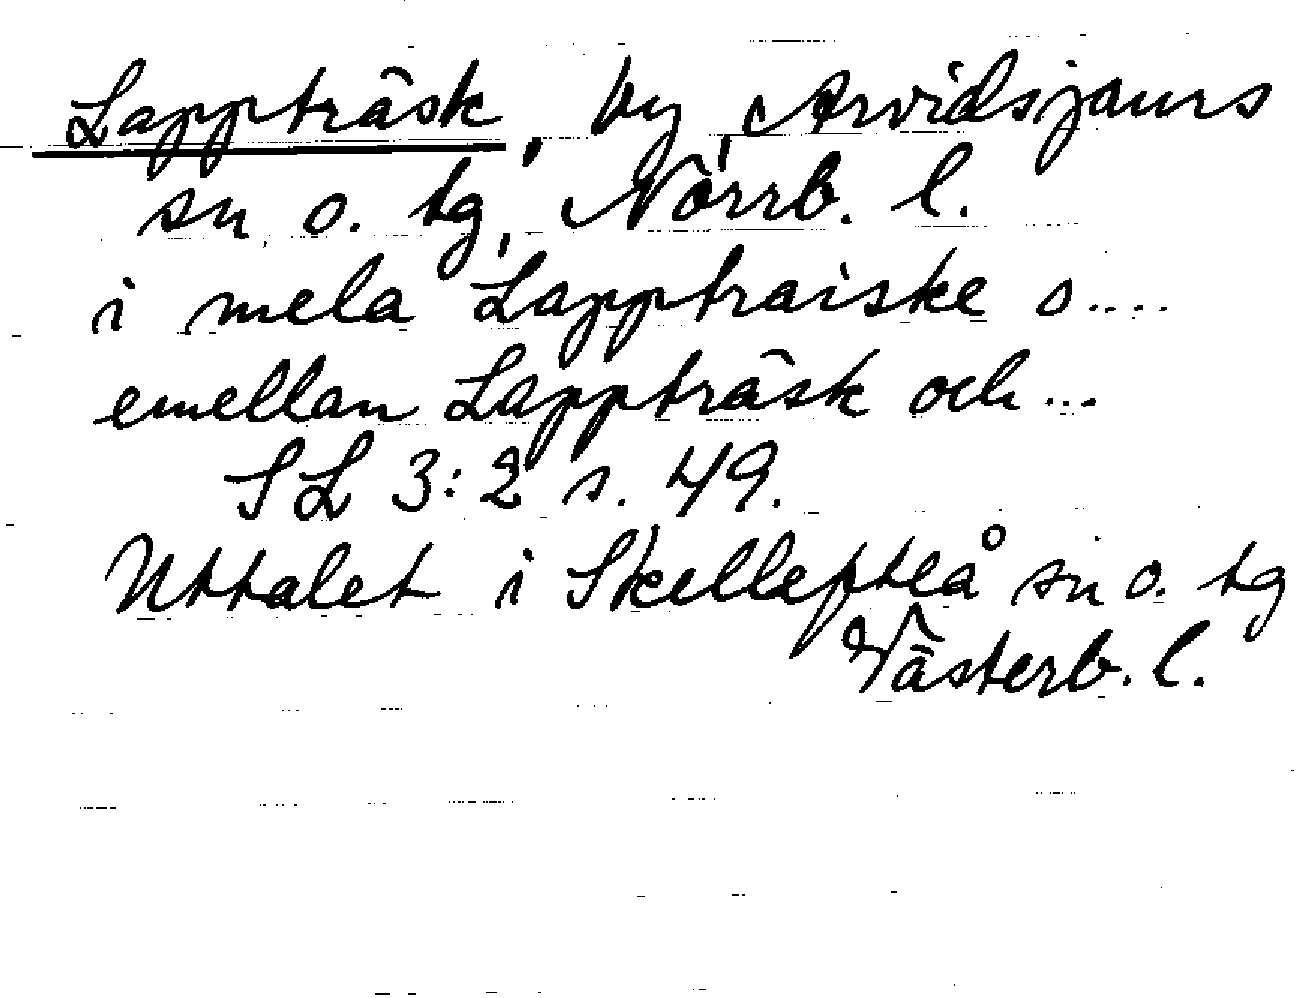 Lappträsk, by, Arvidsjaurs
sn o. tg, Norrb. l.
i mela Lapptraiske o....
emellan Lappträsk och...
SL 3:2 s. 49.
Uttalet i Skellefteå sn o. tg
Västerb. l.